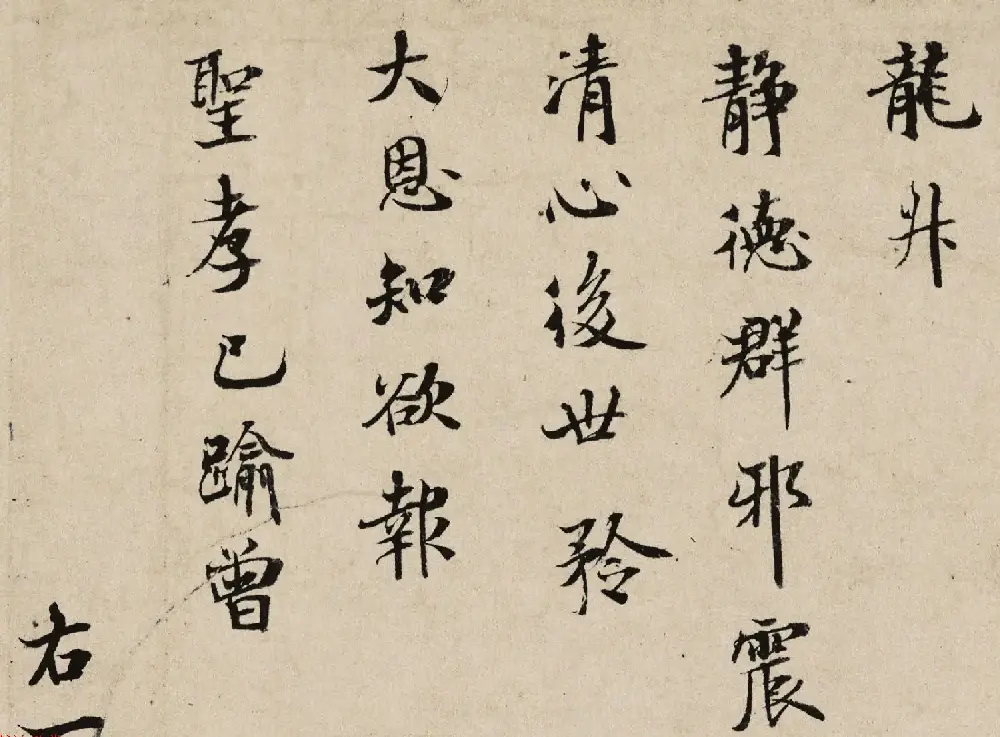 龍升
静德群邪震
清心後世矜
大恩知欲報
聖孝已踰曾
右一